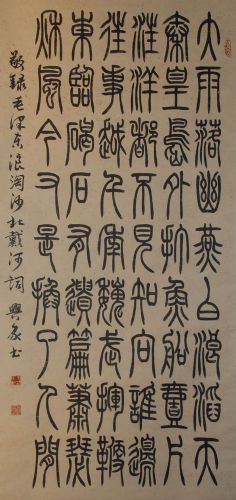 大雨落幽燕白浪滔天
秦皇島外打魚船壹片
汪洋都不見知向誰邊
往事越千年魏武揮鞭
東臨碣石有遺篇蕭瑟
秌風今又是換了人間
敬録毛澤东浪淘沙北戴河詞 興 书